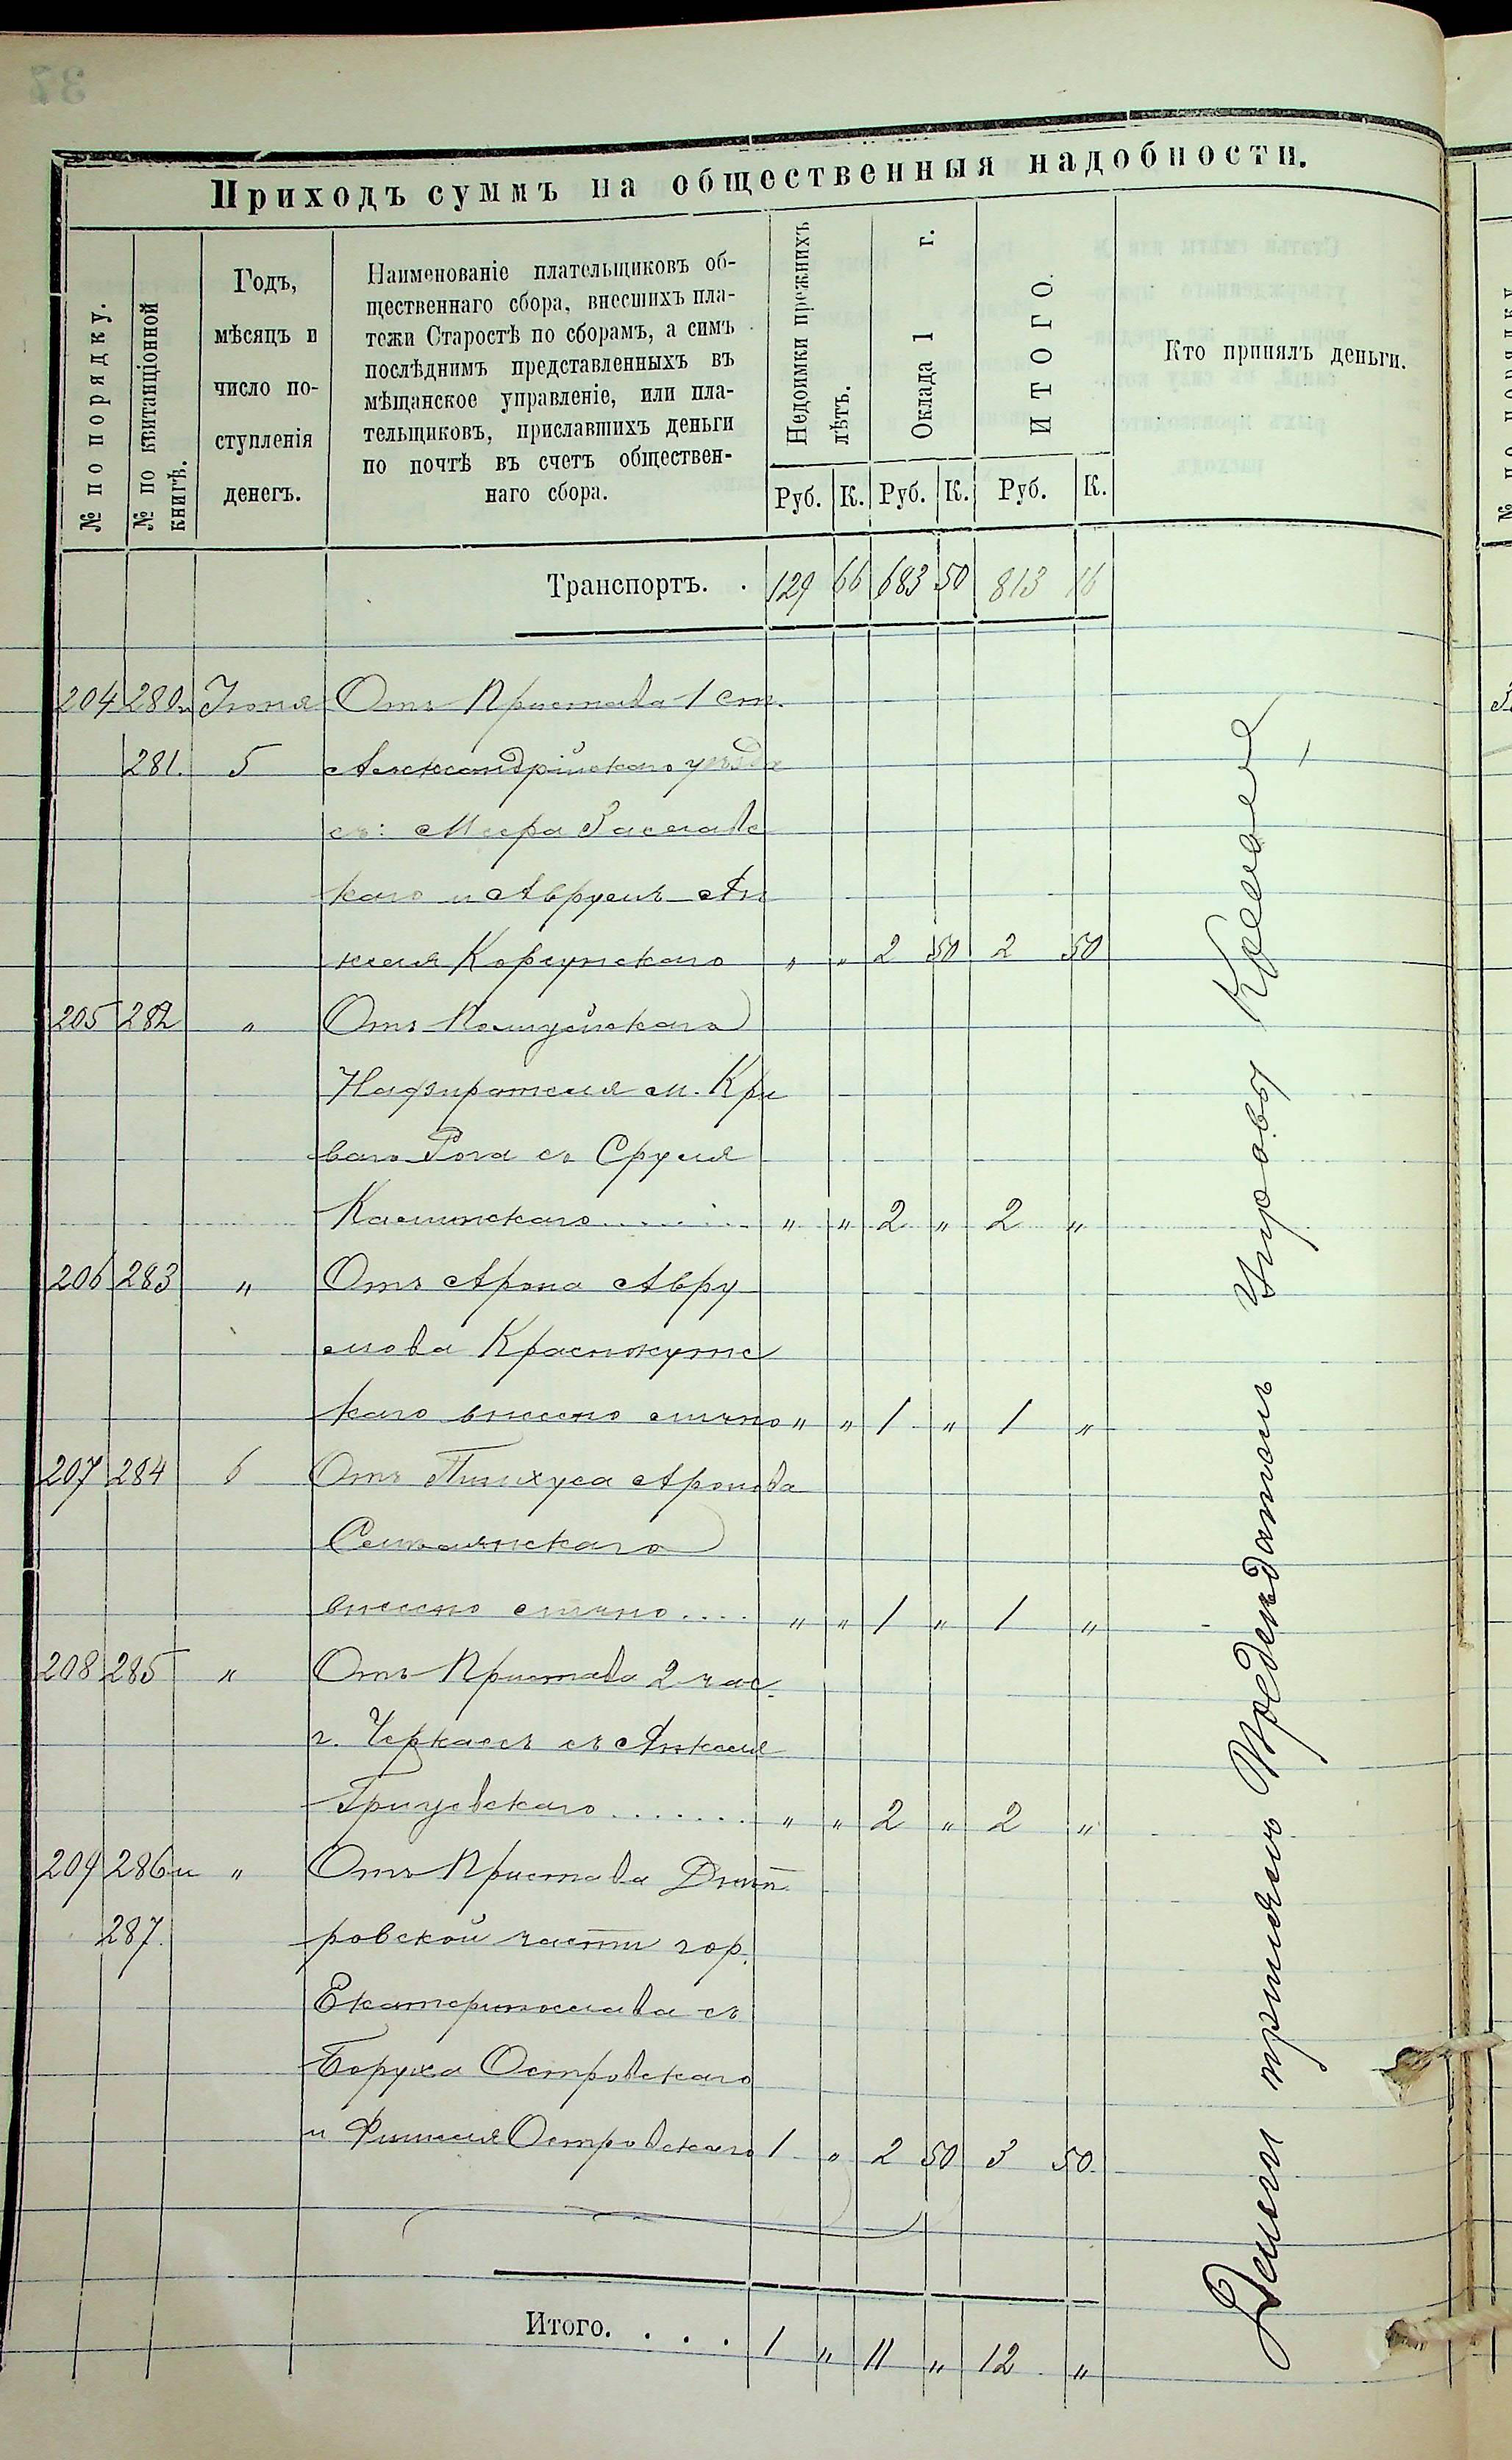 37
Приходъ суммъ на общественныя надобности.
№ по порядку.
№ по квитанціонной книгѣ.
Годъ,
мѣсяцъ и
число по-
ступленія
денегъ.
Наименованіе плательщиковъ об-
щественнаго сбора, внесшихъ пла-
тежи Старостѣ по сборамъ, а симъ
послѣднимъ представленныхъ въ
мѣщанское управленіе, или пла-
тельщиковъ, приславшихъ деньги
по почтѣ въ счетъ обществен-
наго сбора.
Недоимки прежнихъ
лѣтъ.
Оклада 1 г.
ИТОГО.
Кто принялъ деньги.
Руб. К. Руб. К. Руб. К.
Транспортъ. . 129 66 683 50 813 16
204 280 и Іюня Отъ Пристава 1 ст.
281. 5 Александрійскаго уѣзда
съ: Меера Заславс
каго и Аврумъ-Ян
келя Корсунскаго „ „ 2 50 2 50
205 282 „ Отъ Полицейскаго
Надзирателя м. Кри
ваго Рога съ Сруля
Каминскаго....... „ „ 2 „ 2 „
206 283 „ Отъ Арона Авру
мова Краснокутс
каго внесено лично „ „ 1 „ 1 „
207 284 6 Отъ Пинхуса Аронова
внесено лично.... „ „ 1 „ 1 „
208 285 „ Отъ Пристава 2 час.
г. Черкассъ съ Янкеля
....... „ „ 2 „ 2 „
209 286 и „ Отъ Пристава Днѣп
287. ровской части гор.
Екатеринослава съ
Боруха Островскаго
и Фишеля Островскаго 1 „ 2 50 3 50
Итого. . . . 1 „ 11 „ 12 „
Деньги принялъ Предсѣдатель Управы